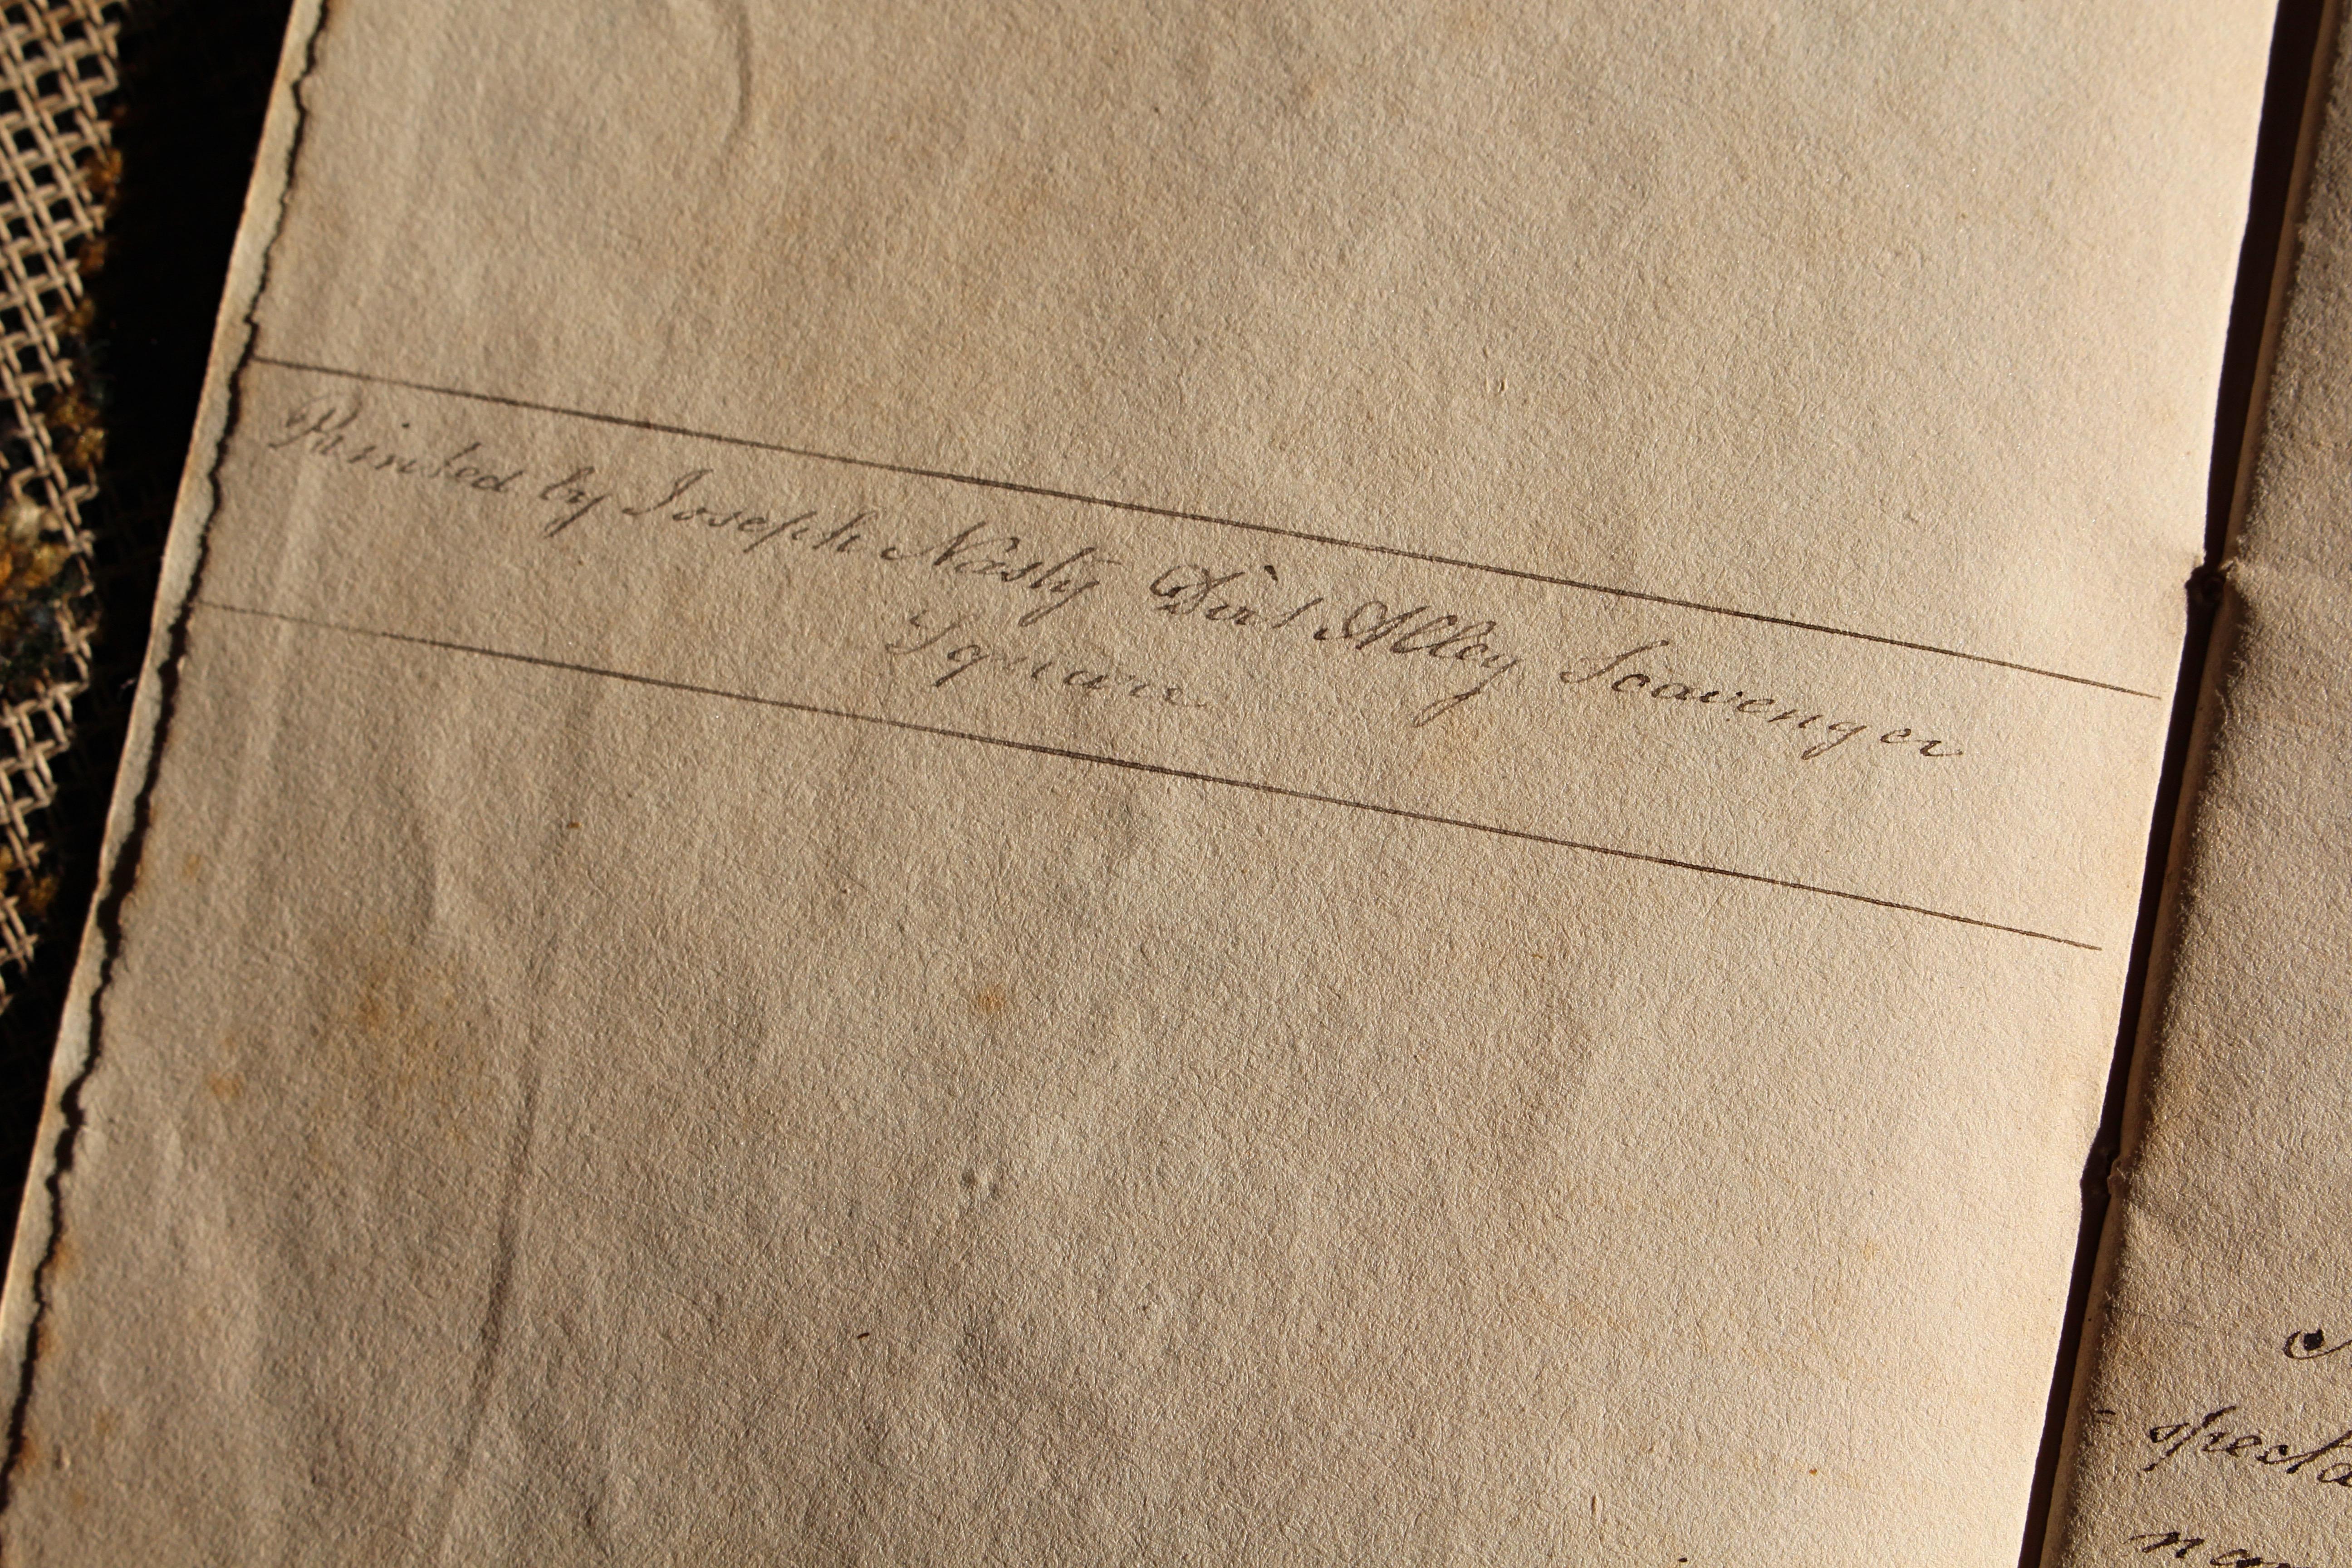 Printed by Joseph Nasty Dirt Alley Scavenger
Square